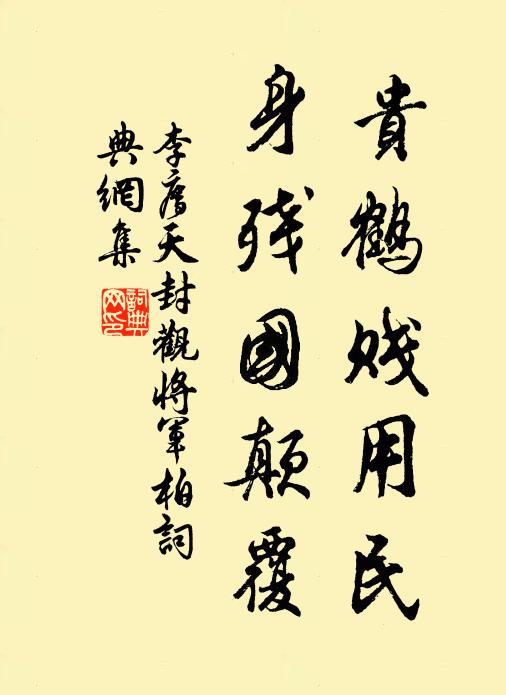 貴鶴賤用民
身殘國顛覆
李廌天封觀將軍柏詞
典網集
詞典網印